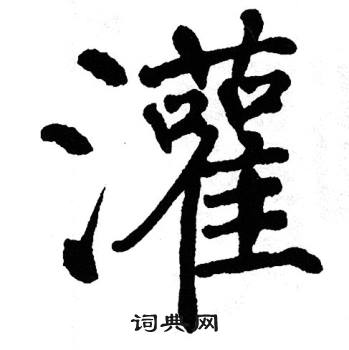 灌
词典网